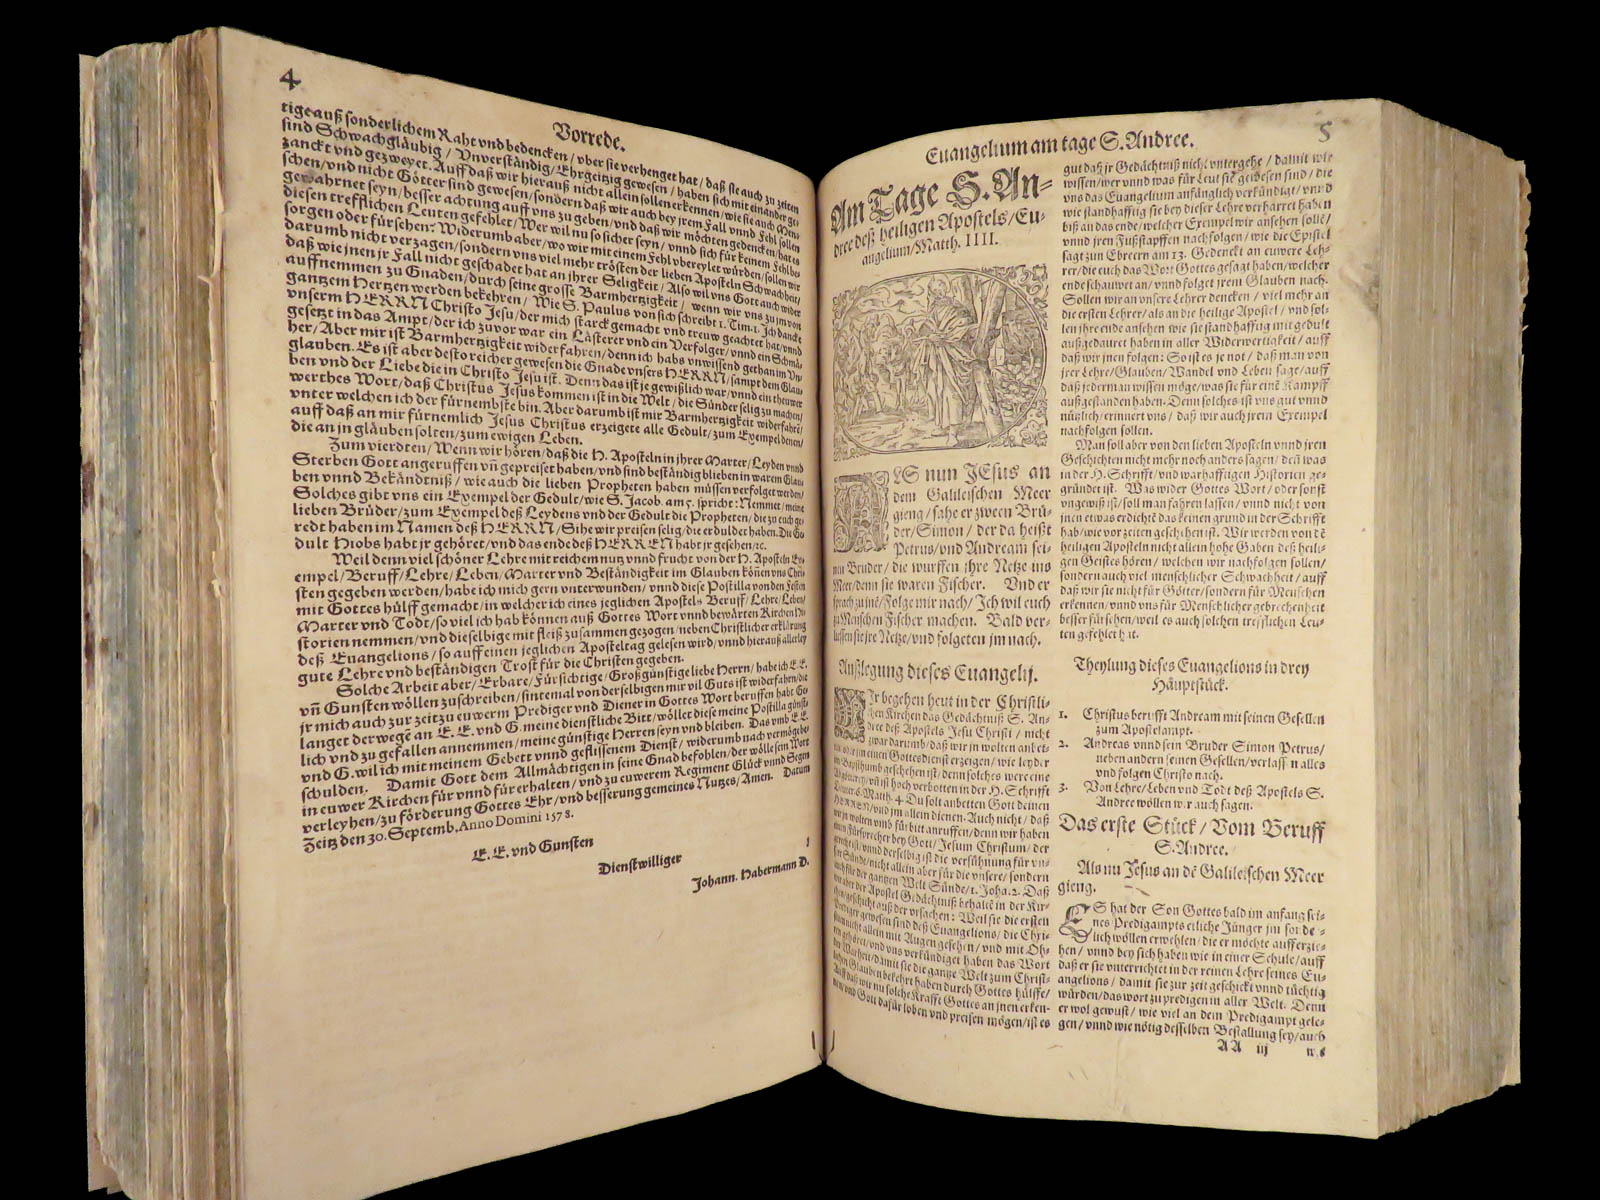 4
Vorrede.
tige auß sonderlichem Raht vnd bedencken / vber sie verhenget hat / daß sie auch zu zeiten
sind Schwachgläubig / Vnverständig / Ehrgeitzig gewesen / haben sich mit einander ge-
zanckt vnd gezweyet. Auff daß wir hierauß nicht allein sollen erkennen / wie sie auch Men-
schen / vnd nicht Götter sind gewesen / sondern daß wir auch bey jrem Fall vnnd Fehl sollen
gewahrnet seyn / besser achtung auff vns zu geben / vnd daß wir möchten gedencken / hat es
diesen trefflichen Leuten gefehlet / Wer wil nu so sicher seyn / vnnd sich für keinem Fehl be-
sorgen oder fürsehen? Widerumb aber / wo wir mit einem Fehl vbereylet würden / sollen wir
darumb nicht verzagen / sondern vns viel mehr trösten der lieben Aposteln Schwachheit /
daß wie jnen jr Fall nicht geschadet hat an jhrer Seligkeit / Also wil vns Gott auch wider
auffnemmen zu Gnaden / durch seine grosse Barmhertzigkeit / wenn wir vns zu jm von
gantzem Hertzen werden bekehren / Wie S. Paulus von sich schreibt 1. Tim. 1. Ich dancke
vnserm HERRN Christo Jesu / der mich starck gemacht vnd treuw geachtet hat / vnnd
gesetzt in das Ampt / der ich zuvor war ein Lästerer vnd ein Verfolger / vnnd ein Schmä-
her / Aber mir ist Barmhertzigkeit widerfahren / denn ich habs vnwissend gethan im Vn-
glauben. Es ist aber desto reicher gewesen die Gnade vnsers HERRN / sampt dem Glau-
ben vnd der Liebe die in Christo Jesu ist. Denn das ist je gewißlich war / vnnd ein theuwer
werthes Wort / daß Christus Jesus kommen ist in die Welt / die Sünder selig zu machen /
vnter welchen ich der fürnembste bin. Aber darumb ist mir Barmhertzigkeit widerfahrē /
auff daß an mir fürnemlich Jesus Christus erzeigete alle Gedult / zum Exempel denen /
die an jn gläuben solten / zum ewigen Leben.
Zum vierdten / Wenn wir hören / daß die H. Aposteln in jhrer Marter / Leyden vnnd
Sterben Gott angeruffen vñ gepreiset haben / vnd sind beständig blieben in warem Glau-
ben vnnd Bekändtniß / wie auch die lieben Propheten haben müssen verfolget werden /
Solches gibt vns ein Exempel der Gedult / wie S. Jacob. am 5. spricht: Nemmet / meine
lieben Brüder / zum Exempel deß Leydens vnd der Gedult die Propheten / die zu euch ge-
redt haben im Namen deß HERRN / Sihe wir preisen selig / die erduldet haben. Die Ge-
dult Hiobs habt jr gehöret / vnd das ende deß HERREN habt jr gesehen / ꝛc.
Weil denn viel schöner Lehre mit reichem nutz vnnd frucht von der H. Aposteln Ex-
empel / Beruff / Lehre / Leben / Marter vnd Beständigkeit im Glauben können vns Chri-
sten gegeben werden / habe ich mich gern vnterwunden / vnnd diese Postilla von den Festen
mit Gottes hülff gemacht / in welcher ich eines jeglichen Apostels Beruff / Lehre / Leben /
Marter vnd Todt / so viel ich hab können auß Gottes Wort vnnd bewärten Kirchen Hi-
storien nemmen / vnd dieselbige mit fleiß zusammen gezogen / neben Christlicher erklärung
deß Euangelions / so auff einen jeglichen Aposteltag gelesen wird / vnnd hierauß allerley
gute Lehre vnd beständigen Trost für die Christen gegeben.
Solche Arbeit aber / Erbare / Fürsichtige / Großgünstige liebe Herrn / habe ich E. E.
vñ Gunsten wöllen zuschreiben / sintemal von derselbigen mir vil Guts ist widerfahren / die
jr mich auch zur zeit zu euwerm Prediger vnd Diener in Gottes Wort beruffen habt. Ge-
langet derwegē an E. E. vnd G. meine dienstliche Bitt / wöllet diese meine Postilla günst-
lich vnd zu gefallen annemmen / meine günstige Herren seyn vnd bleiben. Das vmb E. E.
vnd G. wil ich mit meinem Gebett vnnd geflissenem Dienst / widerumb nach vermögen
schulden. Damit Gott dem Allmächtigen in seine Gnad befohlen / der wölle sein Wort
in euwer Kirchen für vnnd für erhalten / vnd zu euwerem Regiment Glück vnnd Segen
verleyhen / zu förderung Gottes Ehr / vnd besserung gemeines Nutzes / Amen. Datum
Zeitz den 30. Septemb. Anno Domini 1578.
E. E. vnd Gunsten
Dienstwilliger
Johann. Habermann D.
Euangelium am tage S. Andree.
5
Am Tage S. An-
dree deß heiligen Apostels / Eu-
angelium / Matth. IIII.
ALS nun JEsus an
dem Galileischen Meer
gieng / sahe er zween Brü-
der / Simon / der da heißt
Petrus / vnd Andream sei-
nen Bruder / die wurffen jhre Netze ins
Meer / denn sie waren Fischer. Vnd er
sprach zu jnē / Folge mir nach / Ich wil euch
zu Menschen Fischer machen. Bald ver-
liessen sie jre Netze / vnd folgeten jm nach.
Außlegung dieses Euangelij.
WIr begehen heut in der Christli-
chen Kirchen das Gedächtniß S. An-
dree deß Apostels Jesu Christi / nicht
zwar darumb / daß wir jn wolten anbet-
ten oder jm einen Gottesdienst erzeigen / wie leyder
im Bapstthumb geschehen ist / denn solches were eine
Abgötterey / vñ ist hoch verbotten in der H. Schrifft
Matth. 4. Du solt anbetten Gott deinen
HERREN / vnd jm allein dienen. Auch nicht / daß
wir jn wolten vmb fürbitt anruffen / denn wir haben
ein Fürsprecher bey Gott / Jesum Christum / der
gerecht ist / vnnd derselbig ist die versühnung für vn-
ser Sünde / nicht allein aber für die vnsere / sondern
auch für der gantzen Welt Sünde / 1. Joha. 2. Daß
wir aber der Apostel Gedächtniß behaltē in der Kir-
chen / geschicht auß der vrsachen: Weil sie die ersten
Prediger gewesen sind deß Euangelions / die Chri-
stum nicht allein mit Augen gesehen / vnd mit Oh-
ren gehöret / vnd vns verkündiget haben das Wort
der Warheit / damit sie die gantze Welt zum Christ-
lichen Glauben bekehrt haben durch Gottes hülffe /
Auff daß wir nu solche Krafft Gottes an jnen erken-
nen / vnd Gott dafür loben vnd preisen mögen / ist es
gut daß jr Gedächtniß nicht vntergehe / damit wir
wissen / wer vnnd was für Leut sie gewesen sind / die
vns das Euangelium anfänglich verkündigt / vnnd
wie standhafftig sie bey dieser Lehre verharret haben
biß an das ende / welcher Exempel wir ansehen sollē /
vnnd jren Fußstapffen nachfolgen / wie die Epistel
sagt zun Ebreern am 13. Gedenckt an euwere Leh-
rer / die euch das Wort Gottes gesagt haben / welcher
ende schauwet an / vnnd folget jrem Glauben nach.
Sollen wir an vnsere Lehrer dencken / viel mehr an
die ersten Lehrer / als an die heilige Apostel / vnd sol-
len jhre ende ansehen wie sie standhafftig mit gedult
außgedauret haben in aller Widerwertigkeit / auff
daß wir jnen folgen: So ist es je not / daß man von
jrer Lehre / Glauben / Wandel vnd Leben sage / auff
daß jederman wissen möge / was sie für einē Kampff
außgestanden haben. Denn solches ist vns gut vnnd
nützlich / erinnert vns / daß wir auch jrem Exempel
nachfolgen sollen.
Man soll aber von den lieben Aposteln vnnd jren
Geschichten nicht mehr noch anders sagen / deñ was
in der H. Schrifft / vnd warhafftigen Historien ge-
gründet ist. Was wider Gottes Wort / oder sonst
vngewiß ist / soll man fahren lassen / vnnd nicht von
jnen etwas erdichtē das keinen grund in der Schrifft
hab / wie vor zeiten geschehen ist. Wir werden von dē
heiligen Aposteln nicht allein hohe Gaben deß heili-
gen Geistes hören / welchen wir nachfolgen sollen /
sondern auch viel menschlicher Schwachheit / auff
daß wir sie nicht für Götter / sondern für Menschen
erkennen / vnnd vns für Menschlicher gebrechenheit
besser fürsehen / weil es auch solchen trefflichen Leu-
ten gefehlet hat.
Theylung dieses Euangelions in drey
Häuptstück.
1. Christus berufft Andream mit seinen Gesellen
zum Apostelampt.
2. Andreas vnnd sein Bruder Simon Petrus /
neben andern seinen Gesellen / verlassen alles
vnd folgen Christo nach.
3. Von Lehre / Leben vnd Todt deß Apostels S.
Andree wöllen wir auch sagen.
Das erste Stück / Vom Beruff
S. Andree.
Als nu Jesus an dē Galileischen Meer
gieng.
ES hat der Son Gottes bald im anfang sei-
nes Predigampts etliche Jünger jm sonde-
lich wöllen erwehlen / die er möchte aufferzie-
hen / vnnd bey sich haben wie in einer Schule / auff
daß er sie vnterrichtet in der reinen Lehre seines Eu-
angelions / damit sie zur zeit geschickt vnnd tüchtig
würden / das wort zu predigen in aller Welt. Denn
er wol gewust / wie viel an dem Predigampt gele-
gen / vnnd wie nötig desselben Bestallung sey / auch
AA iij